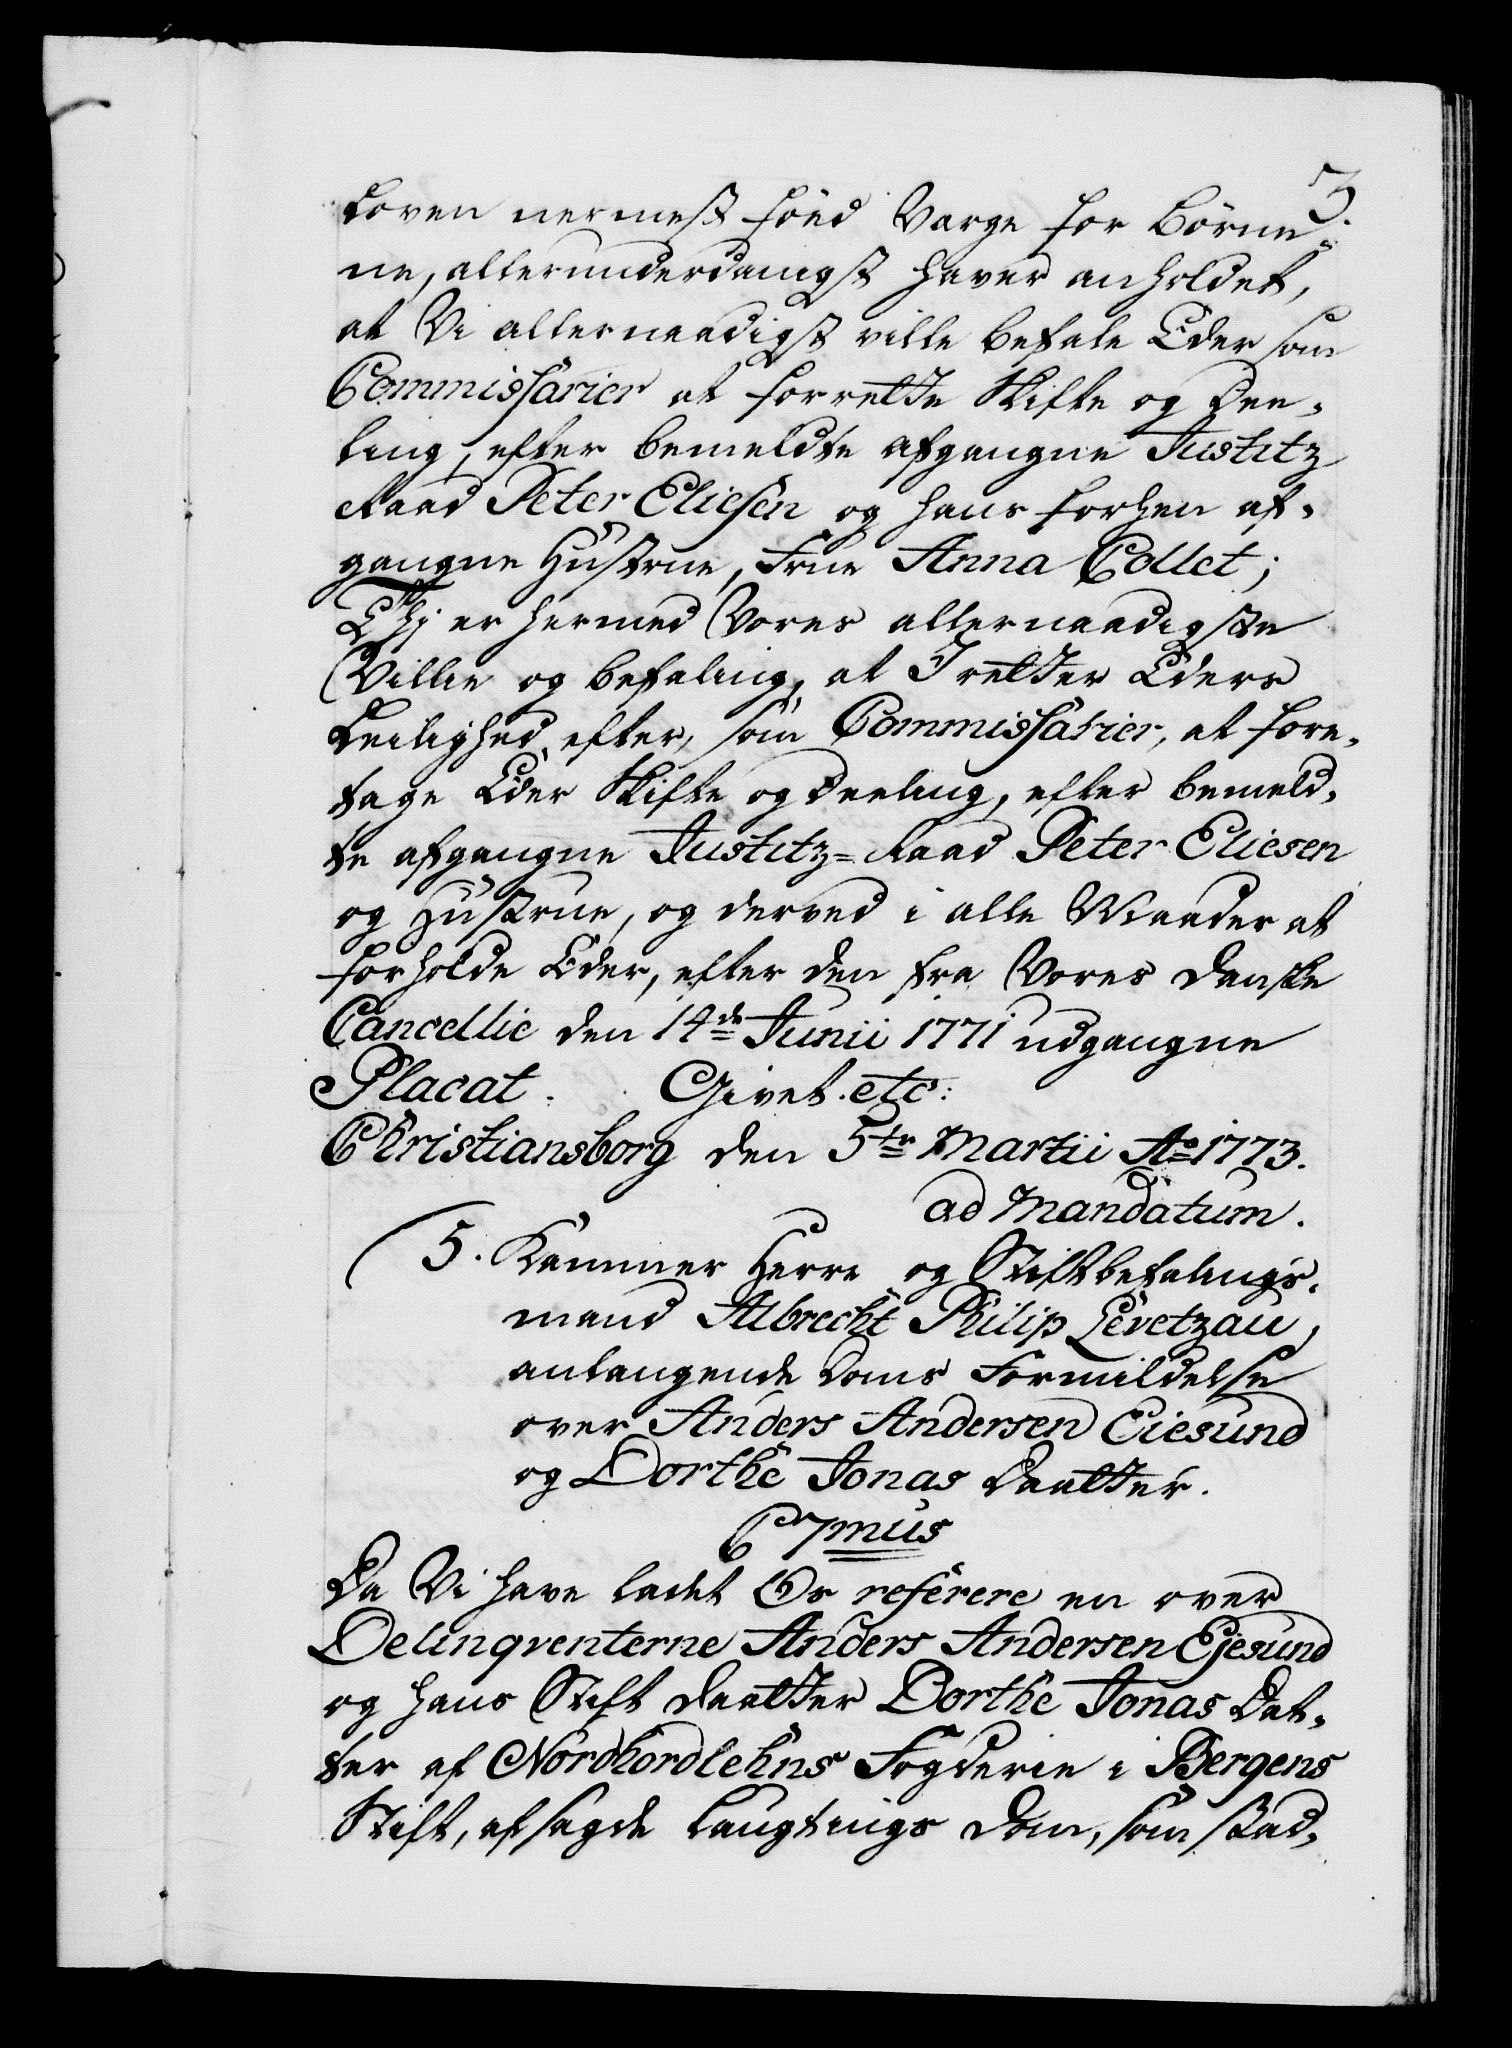 3.
Loven nermest föed Varge for Börne-
ne, allerunderdanigst haver anholdet,
at Vi allernaadigst ville befale Eder som
Commissarier at forrette Skifte og Dee-
ling, efter bemeldte afgangne Justitz
Raad Peter Eliesen og hans forhen af-
gangne Hüstrue, Frue Anna Collet;
Thi er hermed Vores allernaadigste
Villie og befaling, at I retter Eders
Leilighed efter, som Commissarier, at fore-
tage Eder Skifte og Deeling, efter bemeld-
te afgangne Justitz=Raad Peter Eliesen
og Hüstrue, og derved i alle Maader at
forholde Eder, efter den fra Vores danske
Cancellie den 14de Junii 1771 udgangne
Placat. Givet. etc:
Christiansborg den 5te Martii Ao 1773.
ad Mandatum.
5. Kammer Herre og Stiftbefalings-
mand Albrecht Philip Levetzau,
anlangende Doms Formildelse
over Anders Andersen Eiesund
og Dorthe Jonas Daatter.
C 7mus
Da Vi have ladet Os referere en over
Delinqventerne Anders Andersen Ejesund
og hans Stift Daatter Dorthe Jonas Dat-
ter af Nordhordlehns Fogderie i Bergens
Stift, afsagde Laugtings Dom, som stad-